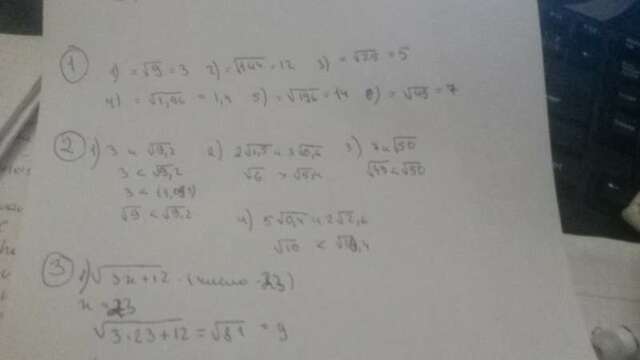 1
1) = √9 = 3 2) = √144 = 12 3) = √25 = 5
4) = √1,96 = 1,4 5) = √196 = 14 6) = √49 = 7
2 1) 3 и √9,2 2) 2√1,5 и 3√0,6 3) 7 и √50
3 < √9,2 √6 > √5,4 √49 < √50
3 <
√9 < √9,2 4) 5√0,4 и 2√2,6
√10 < √10,4
3 1) √3x+12 · (число 23)
x = 23
√3·23+12 = √81 = 9